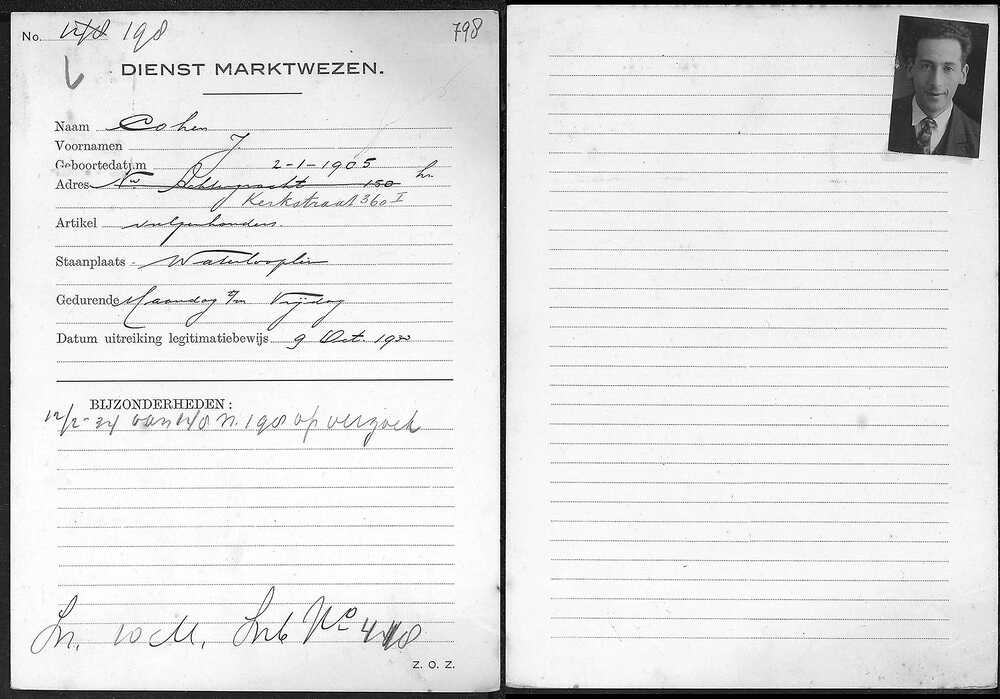 No. 198 798
DIENST MARKTWEZEN.
Naam Cohen
Voornamen J.
Geboortedatum 2-1-1905
Adres Nw Achtergracht 150 hs.
Kerkstraat 360 I
Artikel vulpenhouders.
Staanplaats Waterlooplein
Gedurende Maandag t/m Vrijdag
Datum uitreiking legitimatiebewijs 9 Oct.
BIJZONDERHEDEN:
12/2-34 van n. 198 op verzoek
No 418
Z. O. Z.